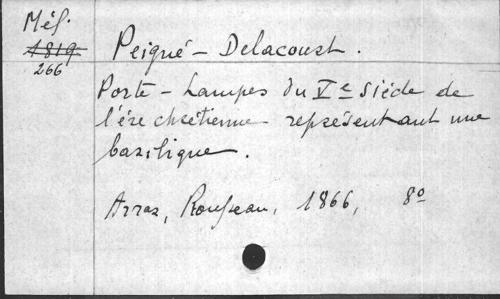 Méf.
1819
266
Peigné-Delacourt.
Porte-Lampes du Ve siècle de
l'ère chrétienne représentant une
basilique.
Arras, Rousseau, 1866, 8o